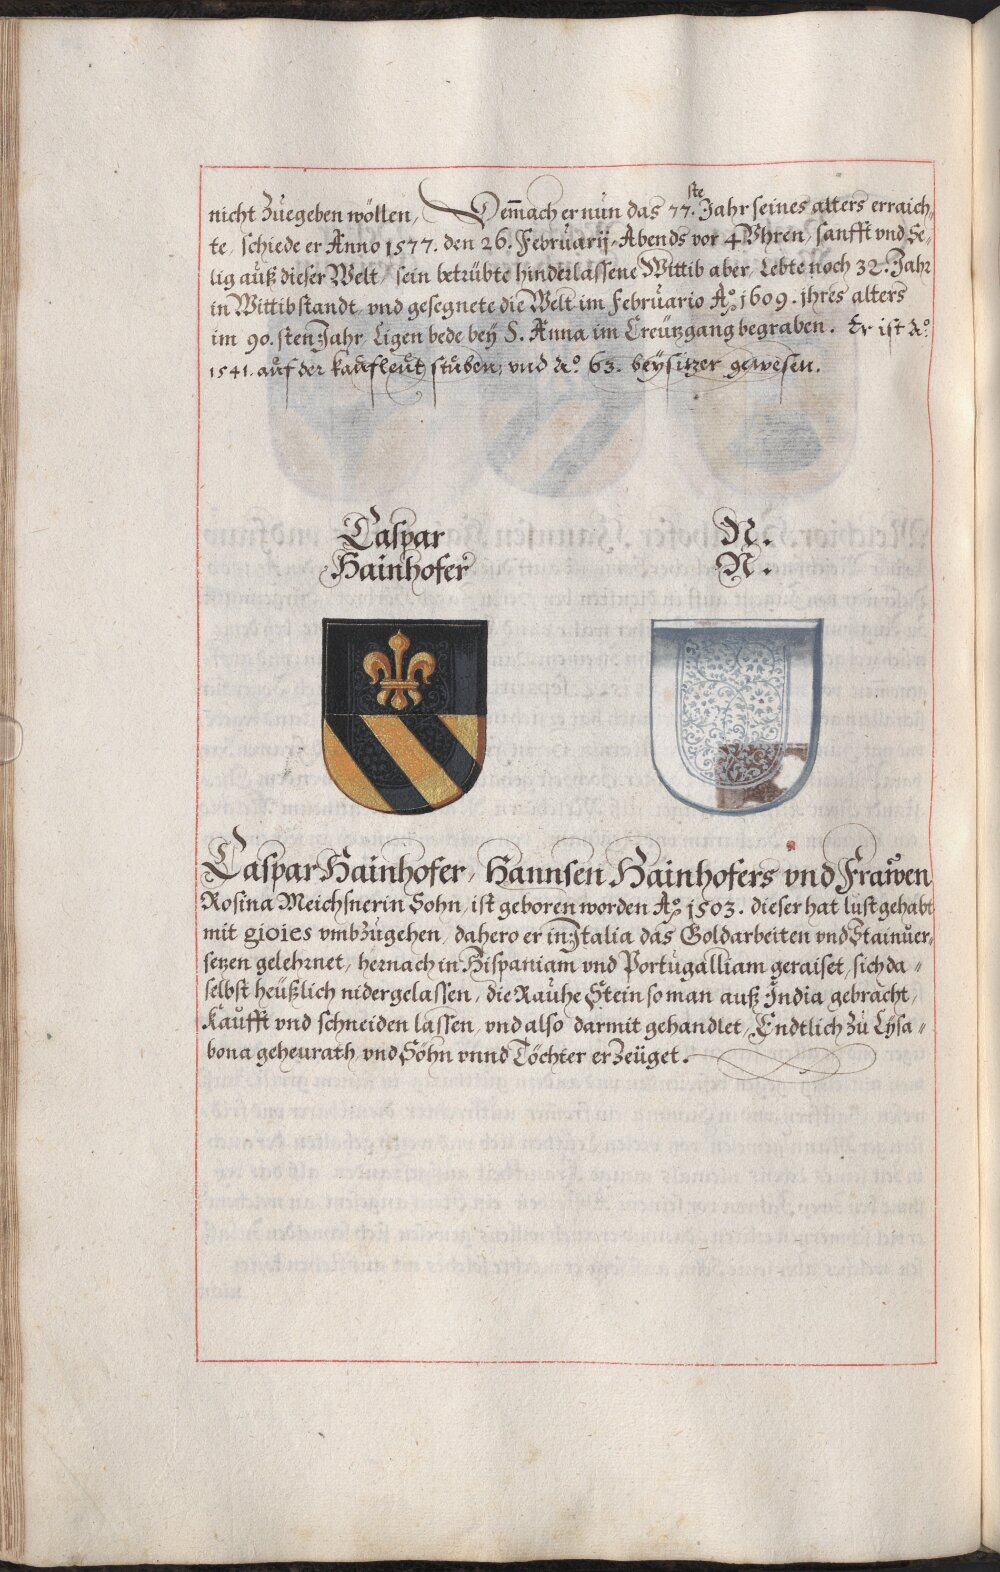 nicht Zuegeben wöllen, Dem̃ach er nun das 77.ste Jahr seines alters erraich,
te, schiede er Anno 1577. den 26. Februarij Abends vor 4 Vhren, sanfft vnd Se-
lig auß dieser Welt, sein betrübte hinderlassene Wittib aber, Lebte noch 32. Jahr
in Wittibstandt, vnd gesegnete die Welt im Februario Aº. 1609. jhres alters
im 90.sten Jahr, Ligen bede bey S. Anna im Creützgang begraben. Er ist Aº.
1541. auf der kaufleut stuben, vnd Aº. 63. beysitzer gewesen.
Caspar
Hainhofer
N.
N.
Caspar Hainhofer, Hannsen Hainhofers vnd Frawen
Rosina Meichsnerin Sohn, ist geboren worden Aº. 1503. dieser hat lust gehabt
mit gioies vmbzugehen, dahero er in Italia das Goldarbeiten vnd Stainuer-
setzen gelehrnet, hernach in Hispaniam vnd Portugalliam geraiset, sich da =
selbst heußlich nidergelassen, die Rauhe Stein so man auß India gebracht,
Kaufft vnd schneiden lassen, vnd also darmit gehandlet, Endtlich zu Lysa =
bona geheurath, vnd Söhn vnnd Töchter erzeüget.